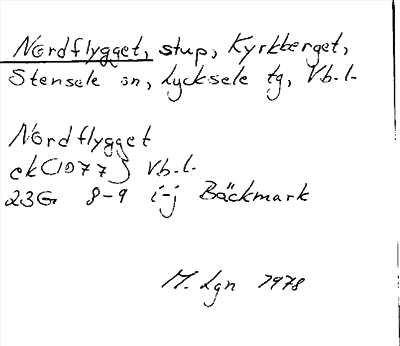 Nordflygget, stup, Kyrkberget,
Stensele sn, Lycksele tg, Vb.l.
Nordflygget
ek(1077) Vb.l.
23G 8-9 i-j Bäckmark
M. Lgn 1978